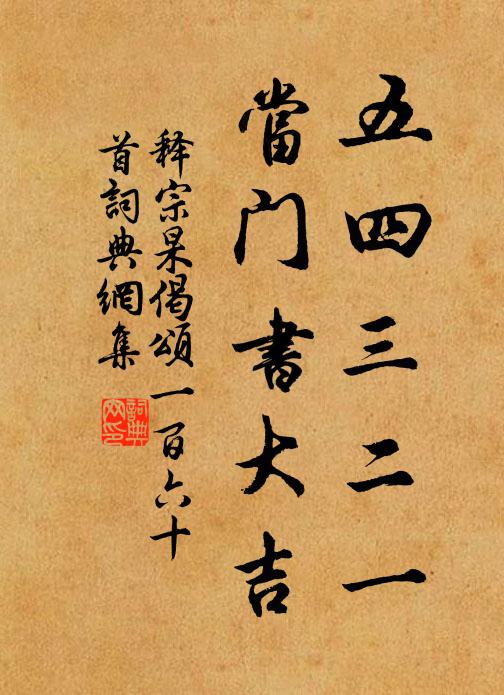 五四三二一
當門書大吉
释宗杲偈頌一百六十
首詞典網集
詞典
网印